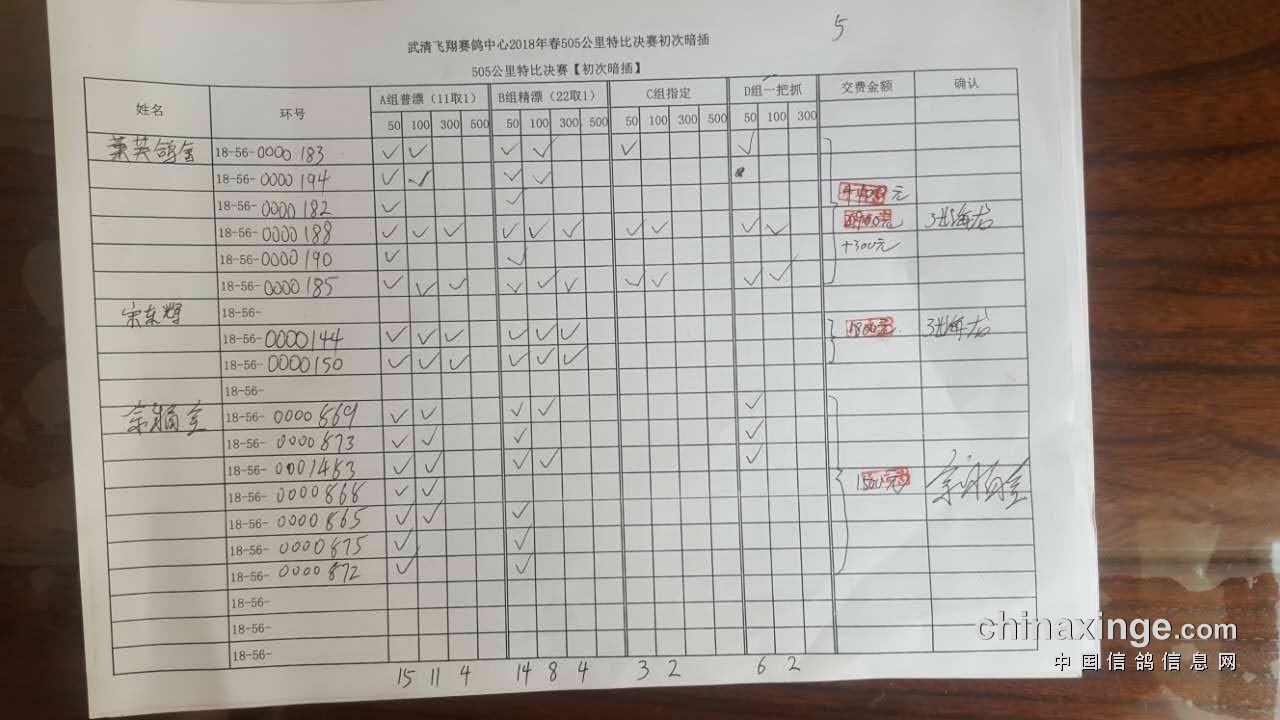 5
武清飞翔赛鸽中心2018年春505公里特比决赛初次暗插
505公里特比决赛【初次暗插】
姓名 环号 A组普漂（11取1） B组精漂（22取1） C组指定 D组一把抓 交费金额 确认
50 100 300 500 50 100 300 500 50 100 300 500 50 100 300
18-56-0000183 ✓ ✓ ✓ ✓ ✓ ✓
18-56-0000194 ✓ ✓ ✓ ✓
18-56-0000182 ✓ ✓ 元
18-56-0000188 ✓ ✓ ✓ ✓ ✓ ✓ ✓ ✓ ✓ ✓
18-56-0000190 ✓ ✓ +300元
18-56-0000185 ✓ ✓ ✓ ✓ ✓ ✓ ✓ ✓ ✓ ✓
宋东辉 18-56-
18-56-0000144 ✓ ✓ ✓ ✓ ✓ ✓ 1800元
18-56-0000150 ✓ ✓ ✓ ✓ ✓ ✓
18-56-
18-56-0000869 ✓ ✓ ✓ ✓ ✓
18-56-0000873 ✓ ✓ ✓ ✓
18-56-0001483 ✓ ✓ ✓ ✓ ✓
18-56-0000868 ✓ ✓ 1500元
18-56-0000865 ✓ ✓ ✓
18-56-0000875 ✓ ✓
18-56-0000872 ✓ ✓
18-56-
18-56-
18-56-
15 11 4 14 8 4 3 2 6 2
chinaxinge.com
中国信鸽信息网